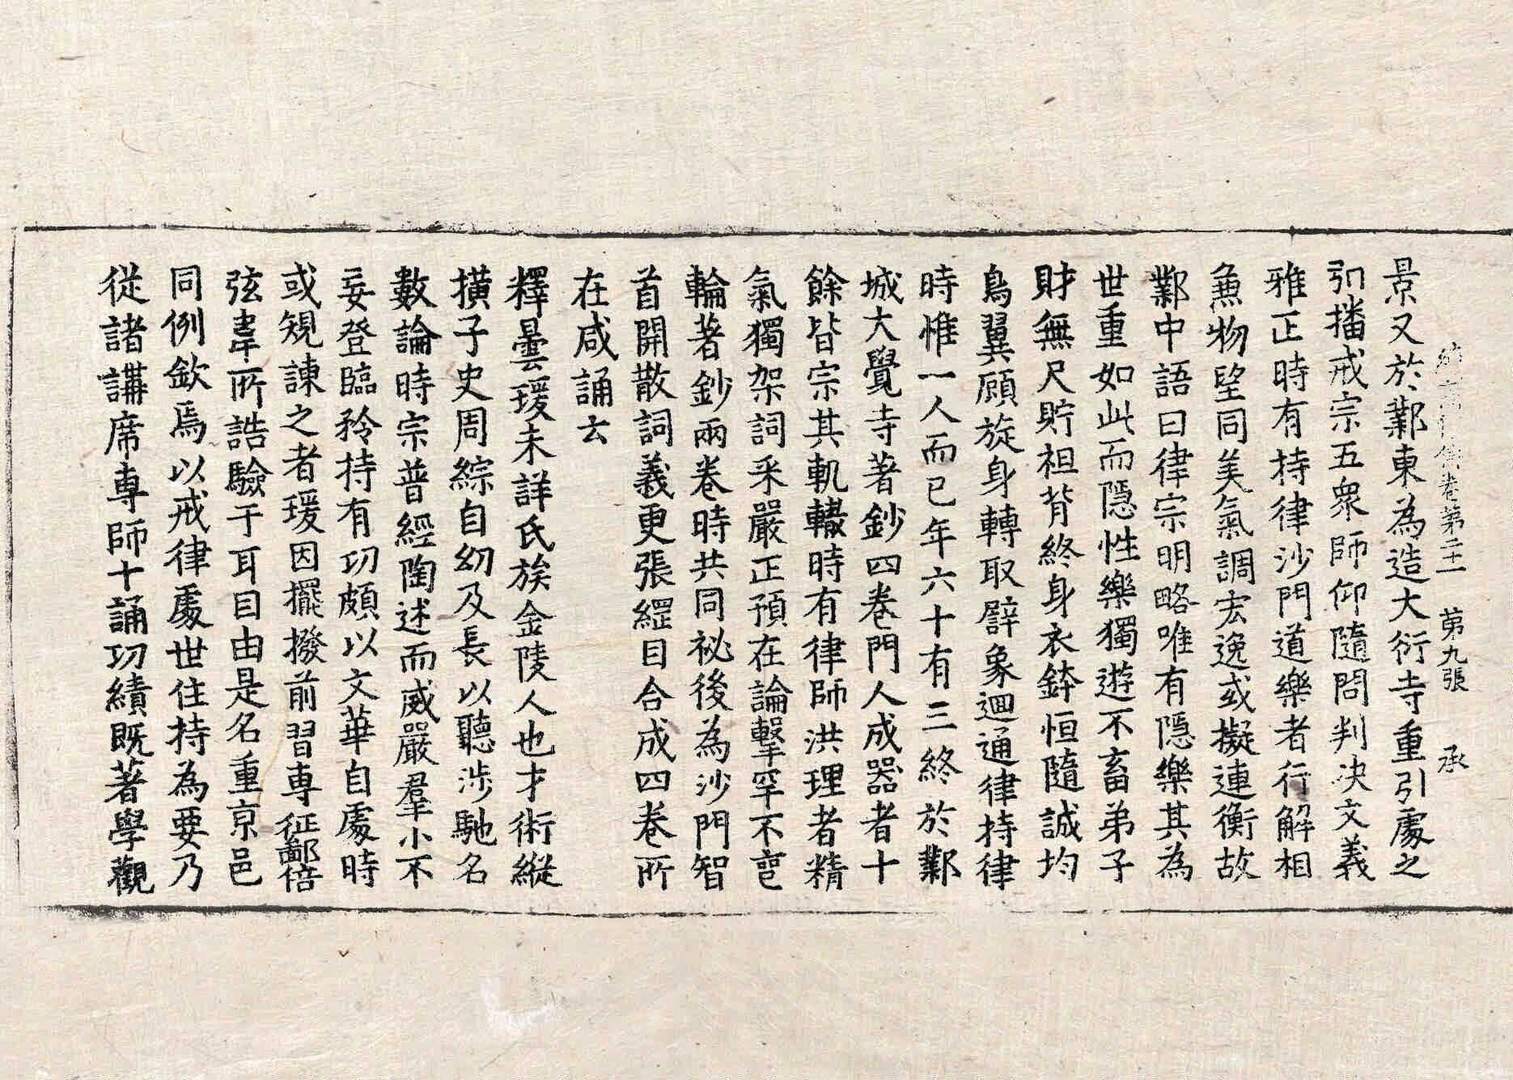 續高僧傳卷第二十一 第九張 承
景又於鄴東為造大衍寺重引處之
弘播戒宗五衆師仰隨問判决文義
雅正時有持律沙門道樂者行解相
兼物望同美氣調宏逸或擬連衡故
鄴中語曰律宗明略唯有隱樂其為
世重如此而隱性樂獨遊不畜弟子
財無尺貯袒背終身衣鉢恒隨誠均
鳥翼顧旋身轉取辟象迴通律持律
時惟一人而已年六十有三終於鄴
城大覺寺著鈔四卷門人成器者十
餘皆宗其軌轍時有律師洪理者精
氣獨架詞采嚴正預在論擊罕不㐮
輪著鈔兩卷時共同祕後為沙門智
首開散詞義更張綱目合成四卷所
在咸誦云
釋曇瑗未詳氏族金陵人也才術縱
撗子史周綜自幼及長以聽涉馳名
數論時宗普經陶述而威嚴羣小不
妄登臨矜持有功頗以文華自處時
或規諫之者瑗因擺撥前習專征鄙倍
弦韋所誥驗于耳目由是名重京邑
同例欽焉以戒律處世住持為要乃
從諸講席專師十誦功績既著學觀